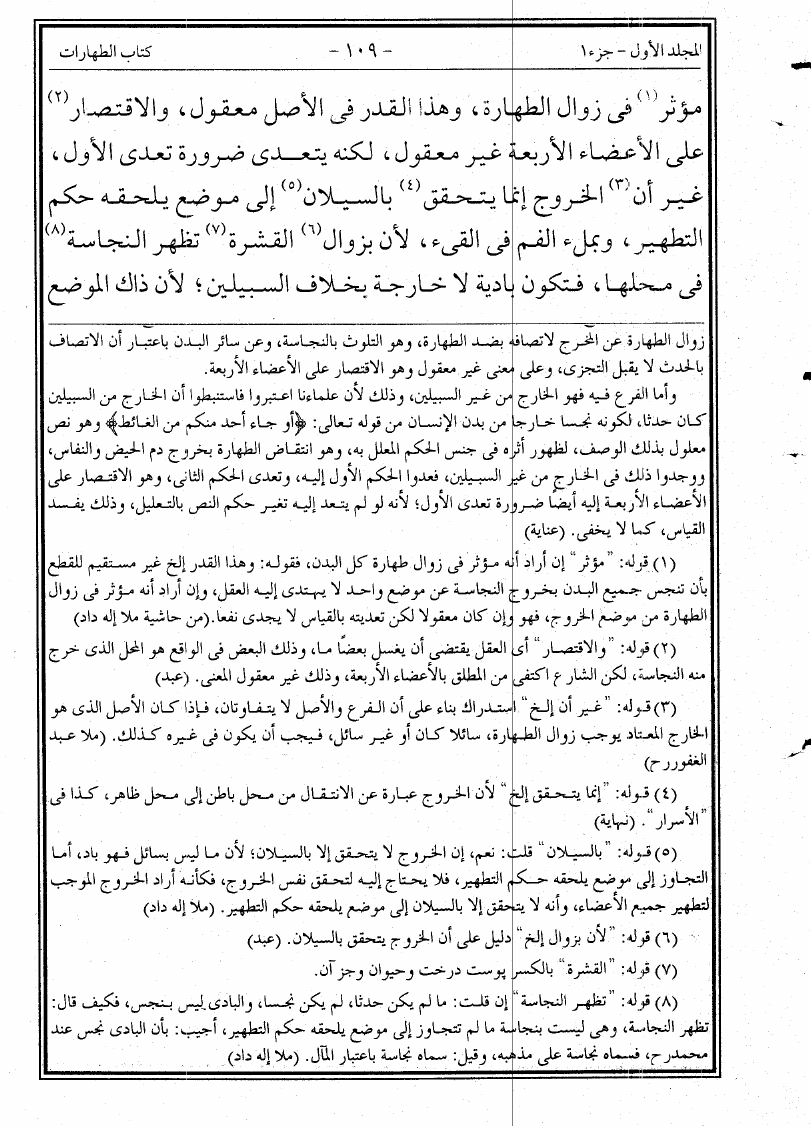 المجلد الأول – جزء١ - ١٠٩ - كتاب الطهارات
مؤثر(١) فى زوال الطهارة، وهذا القدر فى الأصل معقول، والاقتصار(٢)
على الأعضاء الأربعة غير معقول، لكنه يتعدى ضرورة تعدى الأول،
غير أن(٣) الخروج إنما يتحقق(٤) بالسيلان(٥) إلى موضع يلحقه حكم
التطهير، وبملء الفم فى القىء، لأن بزوال(٦) القشرة(٧) تظهر النجاسة(٨)
فى محلها، فتكون بادية لا خارجة بخلاف السبيلين؛ لأن ذاك الموضع
زوال الطهارة عن المخرج لاتصافه بضد الطهارة، وهو التلوث بالنجاسة، وعن سائر البدن باعتبار أن الاتصاف
بالحدث لا يقبل التجزى، وعلى معنى غير معقول وهو الاقتصار على الأعضاء الأربعة.
وأما الفرع فيه فهو الخارج من غير السبيلين، وذلك لأن علماءنا اعتبروا فاستنبطوا أن الخارج من السبيلين
كان حدثا، لكونه نجسا خارجا من بدن الإنسان من قوله تعالى: ﴿أو جاء أحد منكم من الغائط﴾ وهو نص
معلول بذلك الوصف، لظهور أثره فى جنس الحكم المعلل به، وهو انتقاض الطهارة بخروج دم الحيض والنفاس،
ووجدوا ذلك فى الخارج من غير السبيلين، فعدوا الحكم الأول إليه، وتعدى الحكم الثانى، وهو الاقتصار على
الأعضاء الأربعة إليه أيضاً ضرورة تعدى الأول؛ لأنه لو لم يتعد إليه تغير حكم النص بالتعليل، وذلك يفسد
القياس، كما لا يخفى. (عناية)
(١) قوله: "مؤثر" إن أراد أنه مؤثر فى زوال طهارة كل البدن، فقوله: وهذا القدر إلخ غير مستقيم للقطع
بأن تنجس جميع البدن بخروج النجاسة عن موضع واحد لا يهتدى إليه العقل، وإن أراد أنه مؤثر فى زوال
الطهارة من موضع الخروج، فهو وإن كان معقولا لكن تعديته بالقياس لا يجدى نفعا.(من حاشية ملا إله داد)
(٢) قوله: "والاقتصار" أى العقل يقتضى أن يغسل بعضاً ما، وذلك البعض فى الواقع هو المحل الذى خرج
منه النجاسة، لكن الشارع اكتفى من المطلق بالأعضاء الأربعة، وذلك غير معقول المعنى. (عبد)
(٣) قوله: "غير أن إلخ" استدراك بناء على أن الفرع والأصل لا يتفاوتان، فإذا كان الأصل الذى هو
الخارج المعتاد يوجب زوال الطهارة، سائلا كان أو غير سائل، فيجب أن يكون فى غيره كذلك. (ملا عبد
الغفوررح)
(٤) قوله: "إنما يتحقق إلخ" لأن الخروج عبارة عن الانتقال من محل باطن إلى محل ظاهر، كذا فى
"الأسرار". (نهاية)
(٥) قوله: "بالسيلان" قلت: نعم، إن الخروج لا يتحقق إلا بالسيلان؛ لأن ما ليس بسائل فهو باد، أما
التجاوز إلى موضع يلحقه حكم التطهير، فلا يحتاج إليه لتحقق نفس الخروج، فكأنه أراد الخروج الموجب
لتطهير جميع الأعضاء، وأنه لا يتحقق إلا بالسيلان إلى موضع يلحقه حكم التطهير. (ملا إله داد)
(٦) قوله: "لأن بزوال إلخ" دليل على أن الخروج يتحقق بالسيلان. (عبد)
(٧) قوله: "القشرة" بالكسر پوست درخت وحيوان وجز آن.
(٨) قوله: "تظهر النجاسة" إن قلت: ما لم يكن حدثا، لم يكن نجسا، والبادى ليس بنجس، فكيف قال:
تظهر النجاسة، وهى ليست بنجاسة ما لم تتجاوز إلى موضع يلحقه حكم التطهير، أجيب: بأن البادى نجس عند
محمدرح، فسماه نجاسة على مذهبه، وقيل: سماه نجاسة باعتبار المآل. (ملا إله داد)